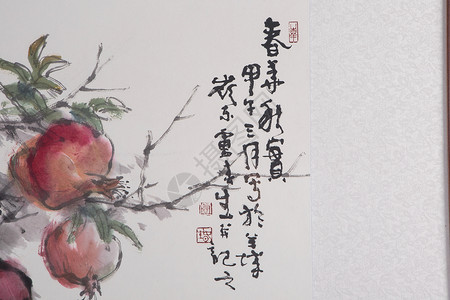 春華秋實
甲午三月寫於羊城
嶺东生并記之